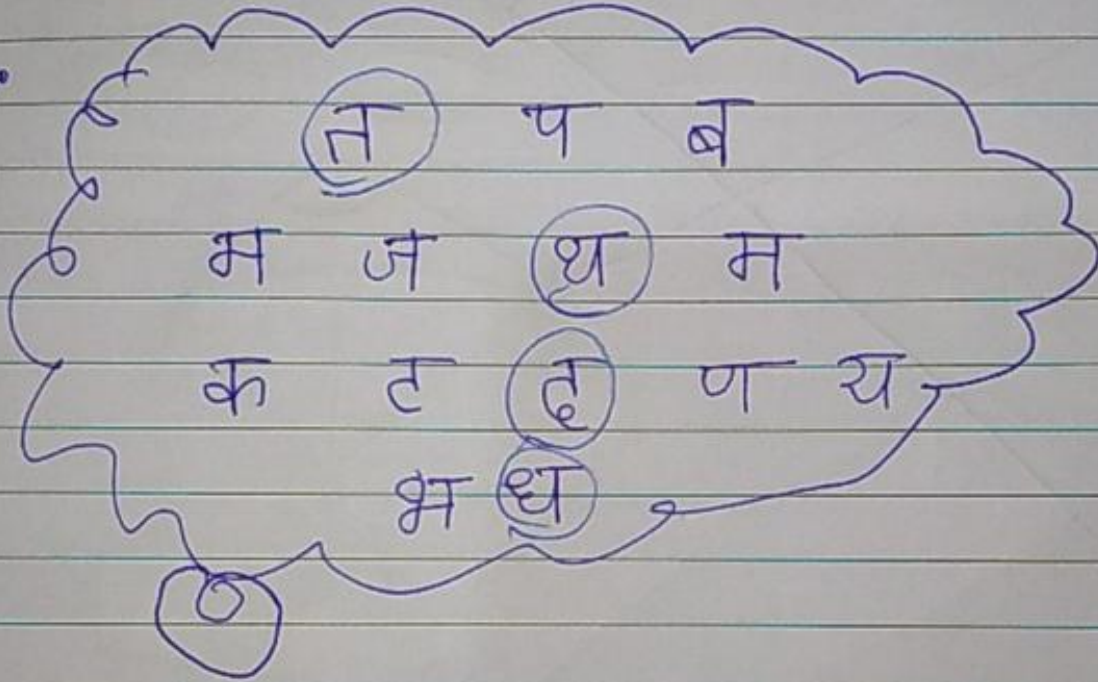 त प ब
म ज थ म
क ट द ण य
भ ध